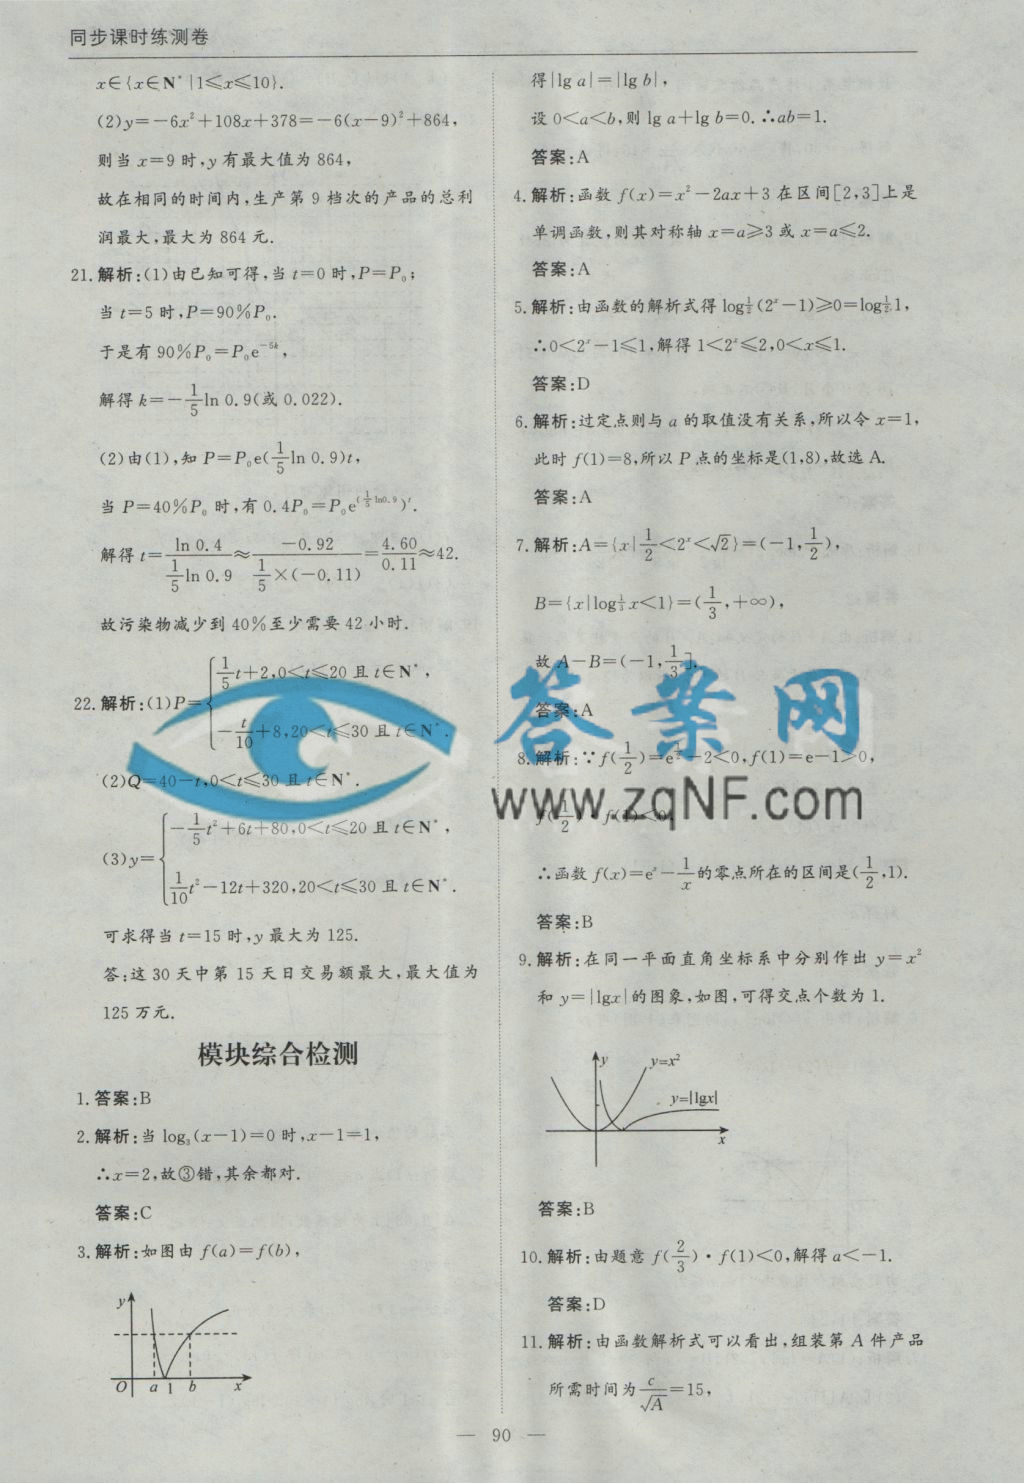 同步课时练测卷
x∈{x∈N*|1≤x≤10}.
(2)y=-6x²+108x+378=-6(x-9)²+864,
则当 x=9 时,y 有最大值为 864,
故在相同的时间内,生产第 9 档次的产品的总利
润最大,最大为 864 元.
21.解析:(1)由已知可得,当 t=0 时,P=P₀;
当 t=5 时,P=90%P₀.
于是有 90%P₀=P₀e^(-5k),
解得 k=-1/5 ln 0.9(或 0.022).
(2)由(1),知 P=P₀e(1/5 ln 0.9)t,
当 P=40%P₀ 时,有 0.4P₀=P₀e^(1/5 ln0.9)ᵗ.
解得 t=ln 0.4/(1/5 ln 0.9)≈-0.92/(1/5×(-0.11))=4.60/0.11≈42.
故污染物减少到 40%至少需要 42 小时.
22.解析:(1)P={1/5 t+2,0<t≤20 且 t∈N*,
-t/10+8,20<t≤30 且 t∈N*.
(2)Q=40-t,0<t≤30 且 t∈N*.
(3)y={-1/5 t²+6t+80,0<t≤20 且 t∈N*,
1/10 t²-12t+320,20<t≤30 且 t∈N*.
可求得当 t=15 时,y 最大为 125.
答:这 30 天中第 15 天日交易额最大,最大值为
125 万元.
模块综合检测
1.答案:B
2.解析:当 log₃(x-1)=0 时,x-1=1,
∴x=2,故③错,其余都对.
答案:C
3.解析:如图由 f(a)=f(b),
y
O a 1 b x
得|lg a|=|lg b|,
设 0<a<b,则 lg a+lg b=0.∴ab=1.
答案:A
4.解析:函数 f(x)=x²-2ax+3 在区间[2,3]上是
单调函数,则其对称轴 x=a≥3 或 x=a≤2.
答案:A
5.解析:由函数的解析式得 log½(2ˣ-1)≥0=log½1,
∴0<2ˣ-1≤1,解得 1<2ˣ≤2,0<x≤1.
答案:D
6.解析:过定点则与 a 的取值没有关系,所以令 x=1,
此时 f(1)=8,所以 P 点的坐标是(1,8),故选 A.
答案:A
7.解析:A={x|1/2<2ˣ<√2}=(-1,1/2),
B={x|log⅓x<1}=(1/3,+∞),
故 A-B=(-1,1/3].
答案:A
8.解析:∵f(1/2)=e^(1/2)-2<0,f(1)=e-1>0,
f(1/2)·f(1)<0,
∴函数 f(x)=eˣ-1/x的零点所在的区间是(1/2,1).
答案:B
9.解析:在同一平面直角坐标系中分别作出 y=x²
和 y=|lgx|的图象,如图,可得交点个数为 1.
y
y=x²
y=|lgx|
x
答案:B
10.解析:由题意 f(2/3)·f(1)<0,解得 a<-1.
答案:D
11.解析:由函数解析式可以看出,组装第 A 件产品
所需时间为c/√A=15,
— 90 —
答案网
www.zqNF.com